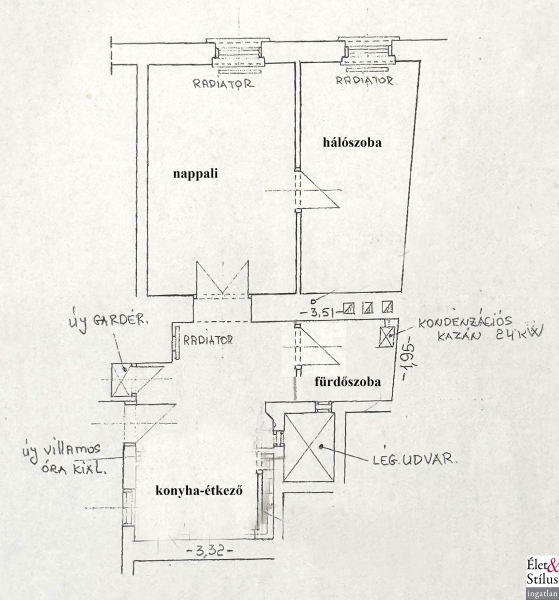 RADIATOR
RADIATOR
hálószoba
nappali
-3,51-
ÚJ GARDÉR.
KONDENZÁCIÓS
KAZÁN 24KW
RADIATOR
-1,95-
fürdőszoba
ÚJ VILLAMOS
ÓRA KIÁL.
LÉG.UDVAR.
konyha-étkező
-3,32-
Élet&
Stílus
ingatlan